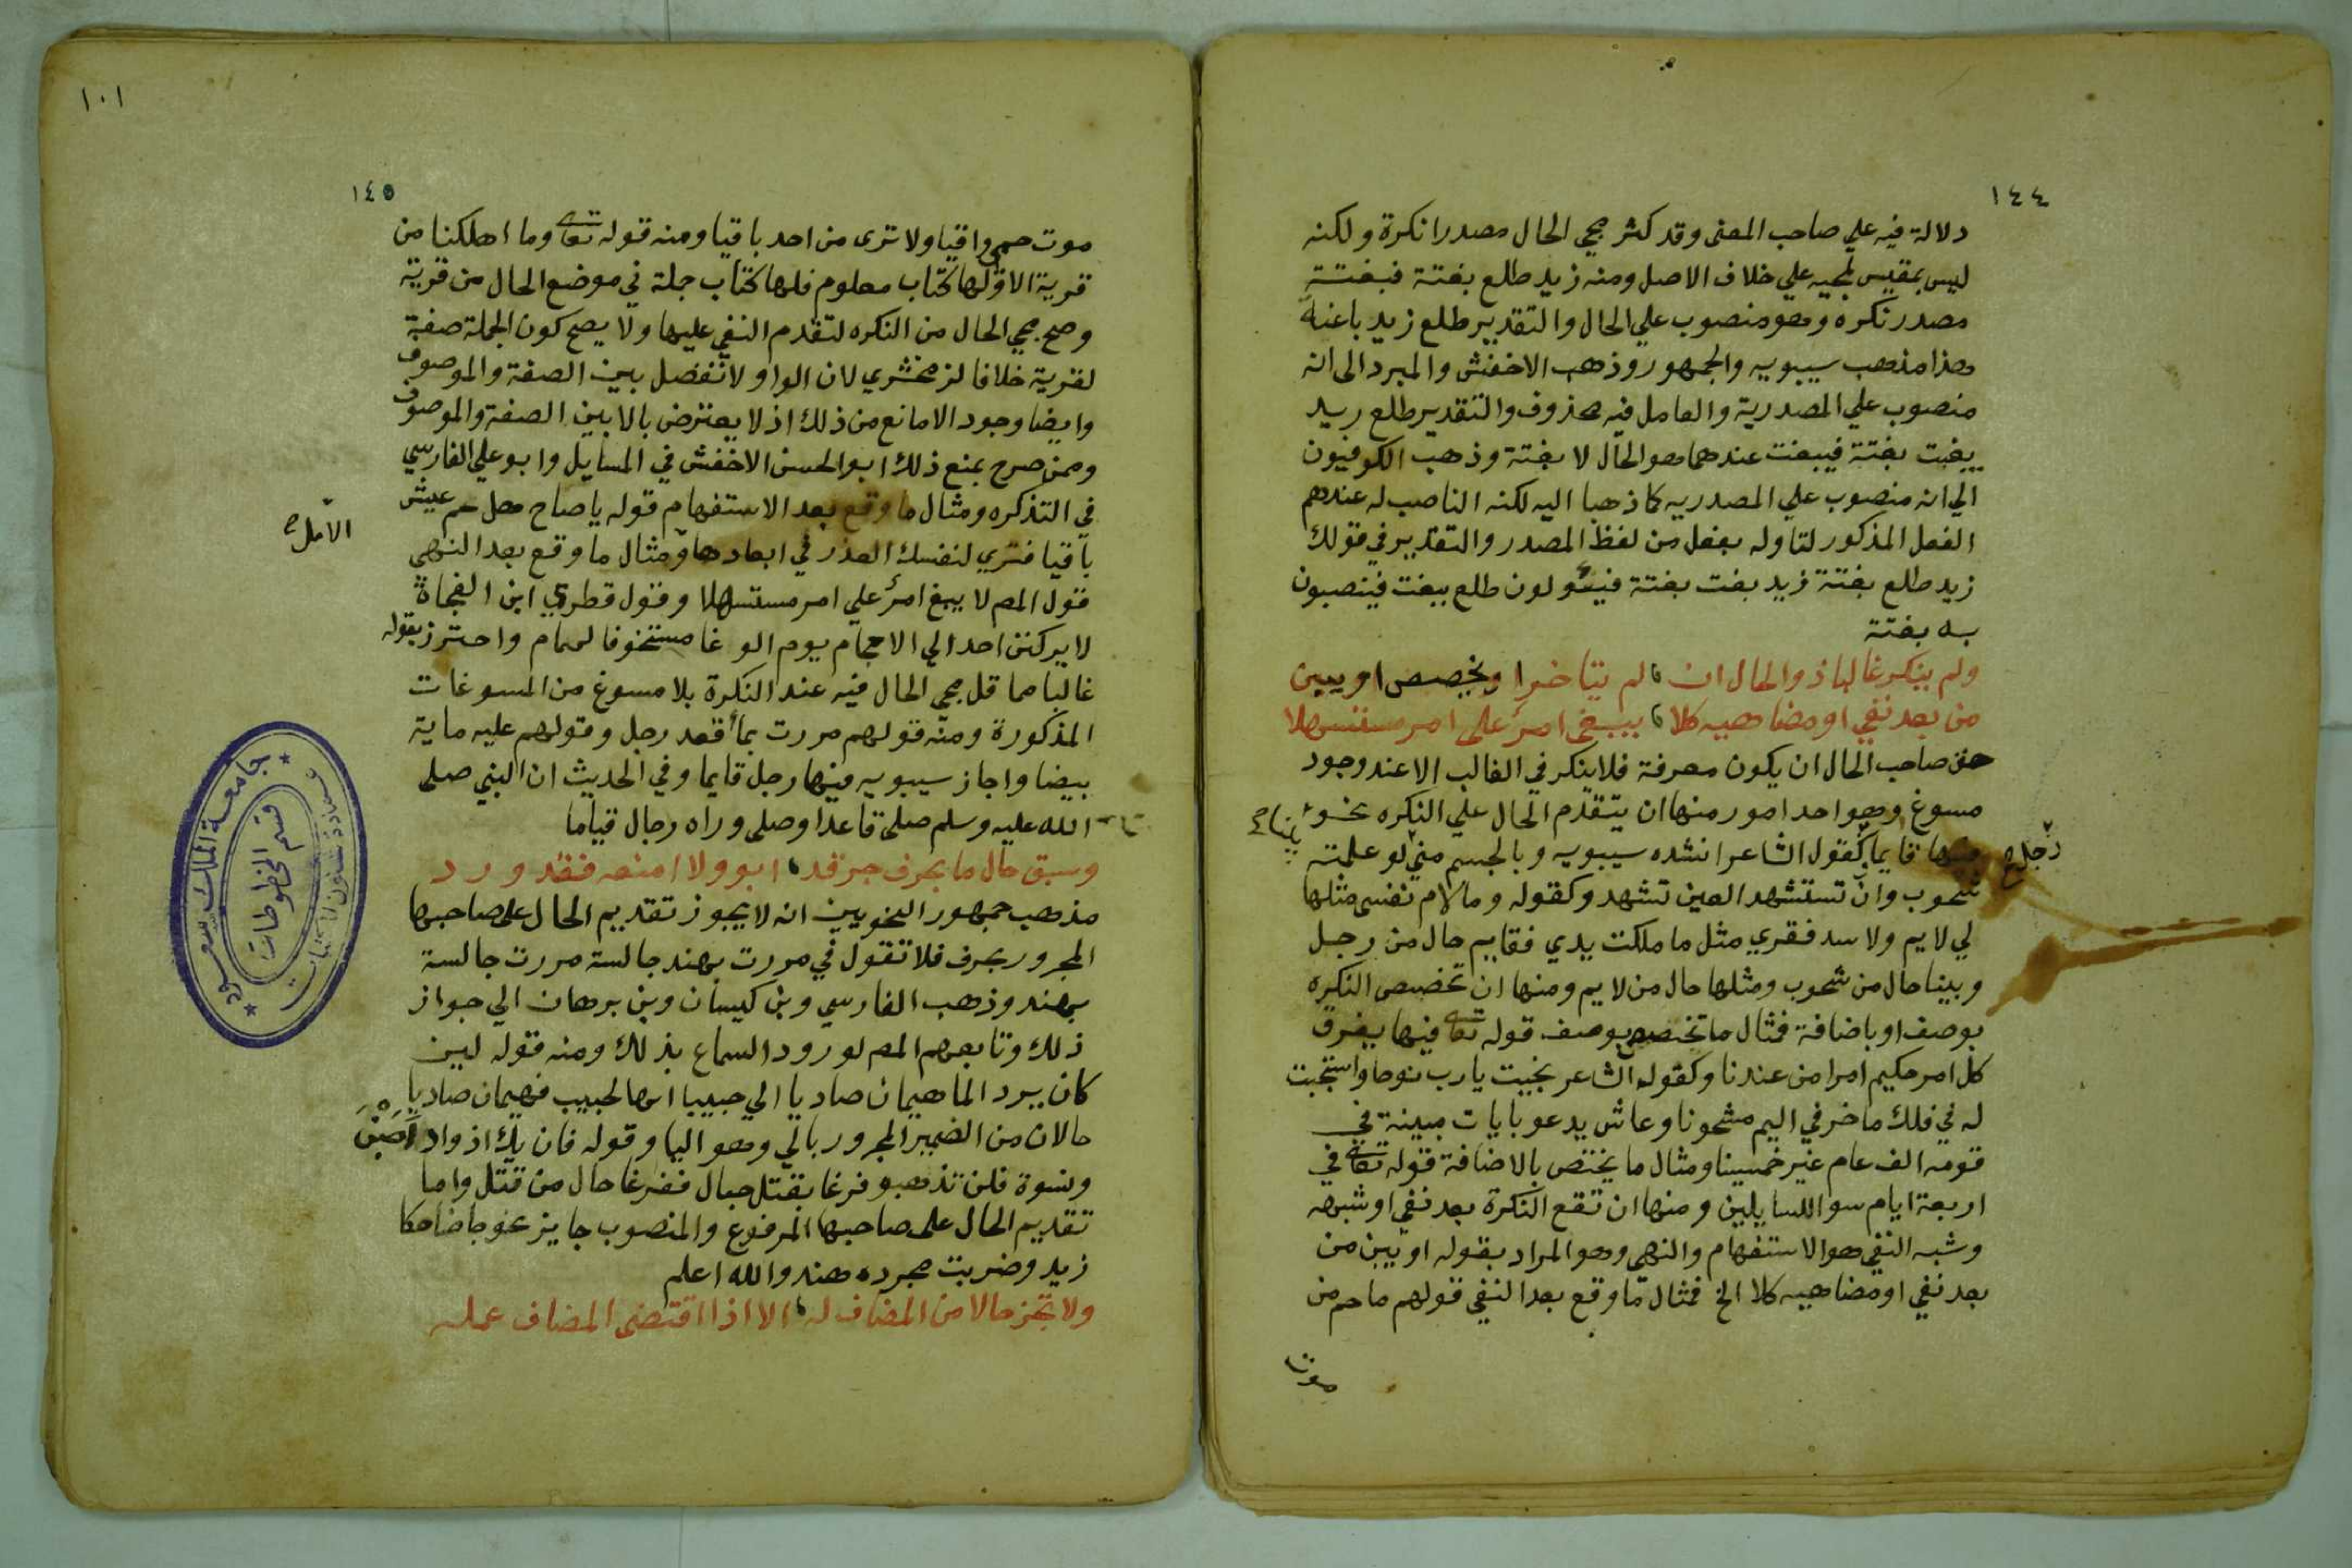 ١٤٤
دلالة فيه علي صاحب المعنى وقد كثر مجي الحال مصدرا نكرة ولكنه
ليس بمقيس لمجيه علي خلاف الاصل ومنه زيد طلع بغتة فبغتة
مصدر نكره وهو منصوب علي الحال والتقدير طلع زيد باغتا
هذا مذهب سيبويه والجمهور وذهب الاخفش والمبرد الى انه
منصوب علي المصدرية والعامل فيه محذوف والتقدير طلع زيد
يبغت بغتة فيبغت عندهما هو الحال لا بغتة وذهب الكوفيون
الي انه منصوب علي المصدريه كما ذهبا اليه لكنه الناصب له عندهم
الفعل المذكور لتاوله بفعل من لفظ المصدر والتقدير في قولك
زيد طلع بغتة زيد بغت بغتة فيئولون طلع ببغت فينصبون
به بغتة
ولم ينكر غالبا ذو الحال ان لم يتاخر او يخصص او يبين
من بعد نفي او مضاهيه كلا يبغى امرئ على امر مستسهلا
حق صاحب الحال ان يكون معرفة فلا ينكر في الغالب الا عند وجود
مسوغ وهو احد امور منها ان يتقدم الحال علي النكره نحو
فيها قايما رجل كقول الشاعر انشده سيبويه وبالجسم مني بينا لو علمته
شحوب وان تستشهد العين تشهد وكقوله وما لام نفسى مثلها
لي لايم ولا سد فقري مثل ما ملكت يدي فقايم حال من رجل
وبينا حال من شحوب ومثلها حال من لايم ومنها ان تخصص النكره
بوصف او باضافة فمثال ما تخصص بوصف قوله تعا فيها يفرق
كل امر حكيم امرا من عندنا وكقول الشاعر نجيت يا رب نوحا واستجبت
له في فلك ماخر في اليم مشحونا وعاش يدعو بايات مبينة في
قومه الف عام غير خمسينا ومثال ما يختص بالاضافة قوله تعا في
اربعة ايام سوا للسايلين ومنها ان تقع النكرة بعد نفي او شبهه
وشبه النفي هو الاستفهام والنهي وهو المراد بقوله او يبن من
بعد نفي او مضاهيه كلا الخ فمثال ما وقع بعد النفي قولهم ما حم من
موت
١٠١
١٤٥
موت حمى واقيا ولا ترى من احد باقيا ومنه قوله تعا وما اهلكنا من
قرية الا ولها كتاب معلوم فلها كتاب جملة في موضع الحال من قرية
وصح مجي الحال من النكره لتقدم النفي عليها ولا يصح كون الجملة صفة
لقرية خلافا لزمخشري لان الواو لا تفصل بين الصفة والموصوف
وايضا وجود الا مانع من ذلك اذ لا يعترض بالا بين الصفة والموصوف
وممن صرح بمنع ذلك ابو الحسن الاخفش في المسايل وابو علي الفارسي
في التذكره ومثال ما وقع بعد الاستفهام قوله يا صاح هل حم عيش
باقيا فتري لنفسك العذر في ابعادها الامل ومثال ما وقع بعد النهي
قول المص لا يبغ امرئ علي امر مستسهلا وقول قطري ابن الفجاة
لا يركنن احد الي الاحجام يوم الوغا متخوفا لحمام واحترز بقوله
غالبا مما قل مجي الحال فيه عند النكرة بلا مسوغ من المسوغات
المذكورة ومنه قولهم مررت بما قعد رجل وقولهم عليه ماية
بيضا واجاز سيبويه فيها رجل قايما وفي الحديث ان النبي صلى
الله عليه وسلم صلى قاعدا وصلى وراه رجال قياما
وسبق حال ما بحرف جر قد ابو ولا امنعه فقد ورد
مذهب جمهور النحويين انه لا يجوز تقديم الحال على صاحبها
المجرور بحرف فلا تقول في مررت بهند جالسة مررت جالسة
بهند وذهب الفارسي وبن كيسان وبن برهان الي جواز
ذلك وتابعهم المص لورود السماع بذلك ومنه قوله لين
كان برد الما هيمان صاديا الي حبيبا انها لحبيب فهيمان صاديا
حالان من الضمير المجرور بالي وهو اليا وقوله فان يك اذواد اصبن
ونسوة فلن تذهبو فرغا بقتل حبال ففرغا حال من قتل واما
تقديم الحال على صاحبها المرفوع والمنصوب جايز نحو جا ضاحكا
زيد وضربت مجرده هند والله اعلم
ولا تجز حالا من المضاف له الا اذا اقتضى المضاف عمله
جامعة الملك سعود
قسم المخطوطات